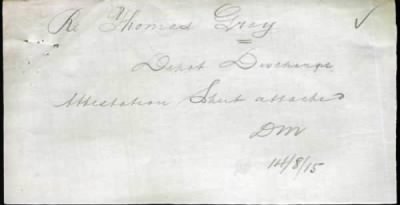 Re Thomas Gray
Depot Discharge
Attestation Sheet attached
DM
14/8/15